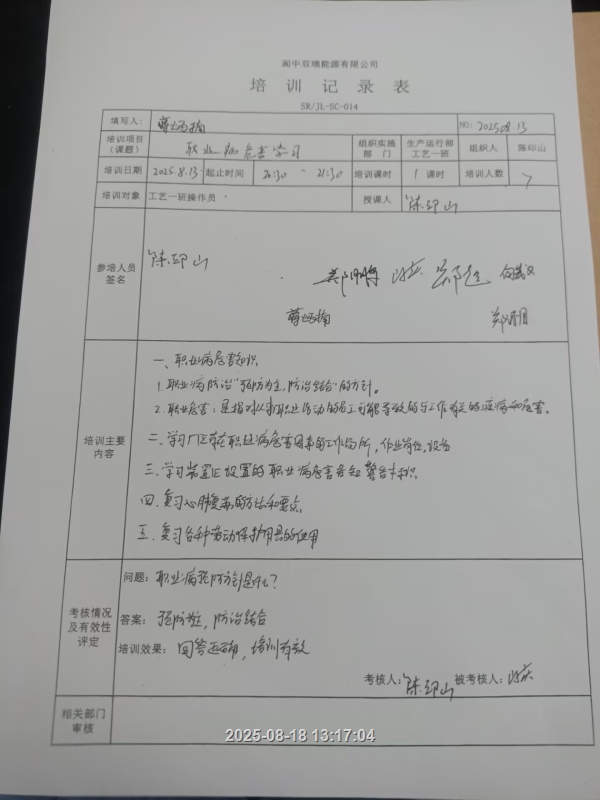 阆中双瑞能源有限公司
培训记录表
SR/JL-SC-014
填写人： NO: 2025.08.13
培训项目（课题） 职业病危害学习 组织实施部门 生产运行部工艺一班 组织人 陈印山
培训日期 2025.8.13 起止时间 20:30 - 21:30 培训课时 1 课时 培训人数 7
培训对象 工艺一班操作员 授课人 陈印山
参培人员签名 陈印山
郑明月
培训主要内容
一、职业病危害知识
1.职业病防治"预防为主，防治结合"的方针。
2.职业危害：是指对从事职业活动的员工可能导致的与工作有关的疾病和危害。
二、学习厂区存在职业病危害因素的工作场所，作业岗位，设备
三、学习装置区设置的职业病危害告知警告标识
四、复习心肺复苏的方法和要点
五、复习各种劳动保护用具的使用
考核情况及有效性评定
问题：职业病预防方针是什么？
答案：预防为主，防治结合
培训效果：回答正确，培训有效
考核人：陈印山 被考核人：
相关部门审核
2025-08-18 13:17:04